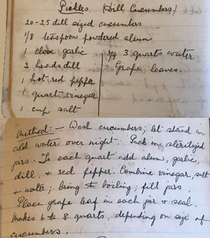 Pickles. (Dill Cucumbers)
20-25 dill sized cucumbers
1/8 teaspoon powdered alum
1 clove garlic
3 quarts water
2 heads dill
Grape leaves
1 hot red pepper
1 quart vinegar
1 cup salt
Method:- Wash cucumbers; let stand in
cold water over night. Pack in sterilized
jars. To each quart add alum, garlic,
dill, & red pepper. Combine vinegar, salt
& water; bring to boiling; fill jars.
Place grape leaf in each jar & seal.
Makes 6 to 8 quarts, depending on size of
cucumbers.